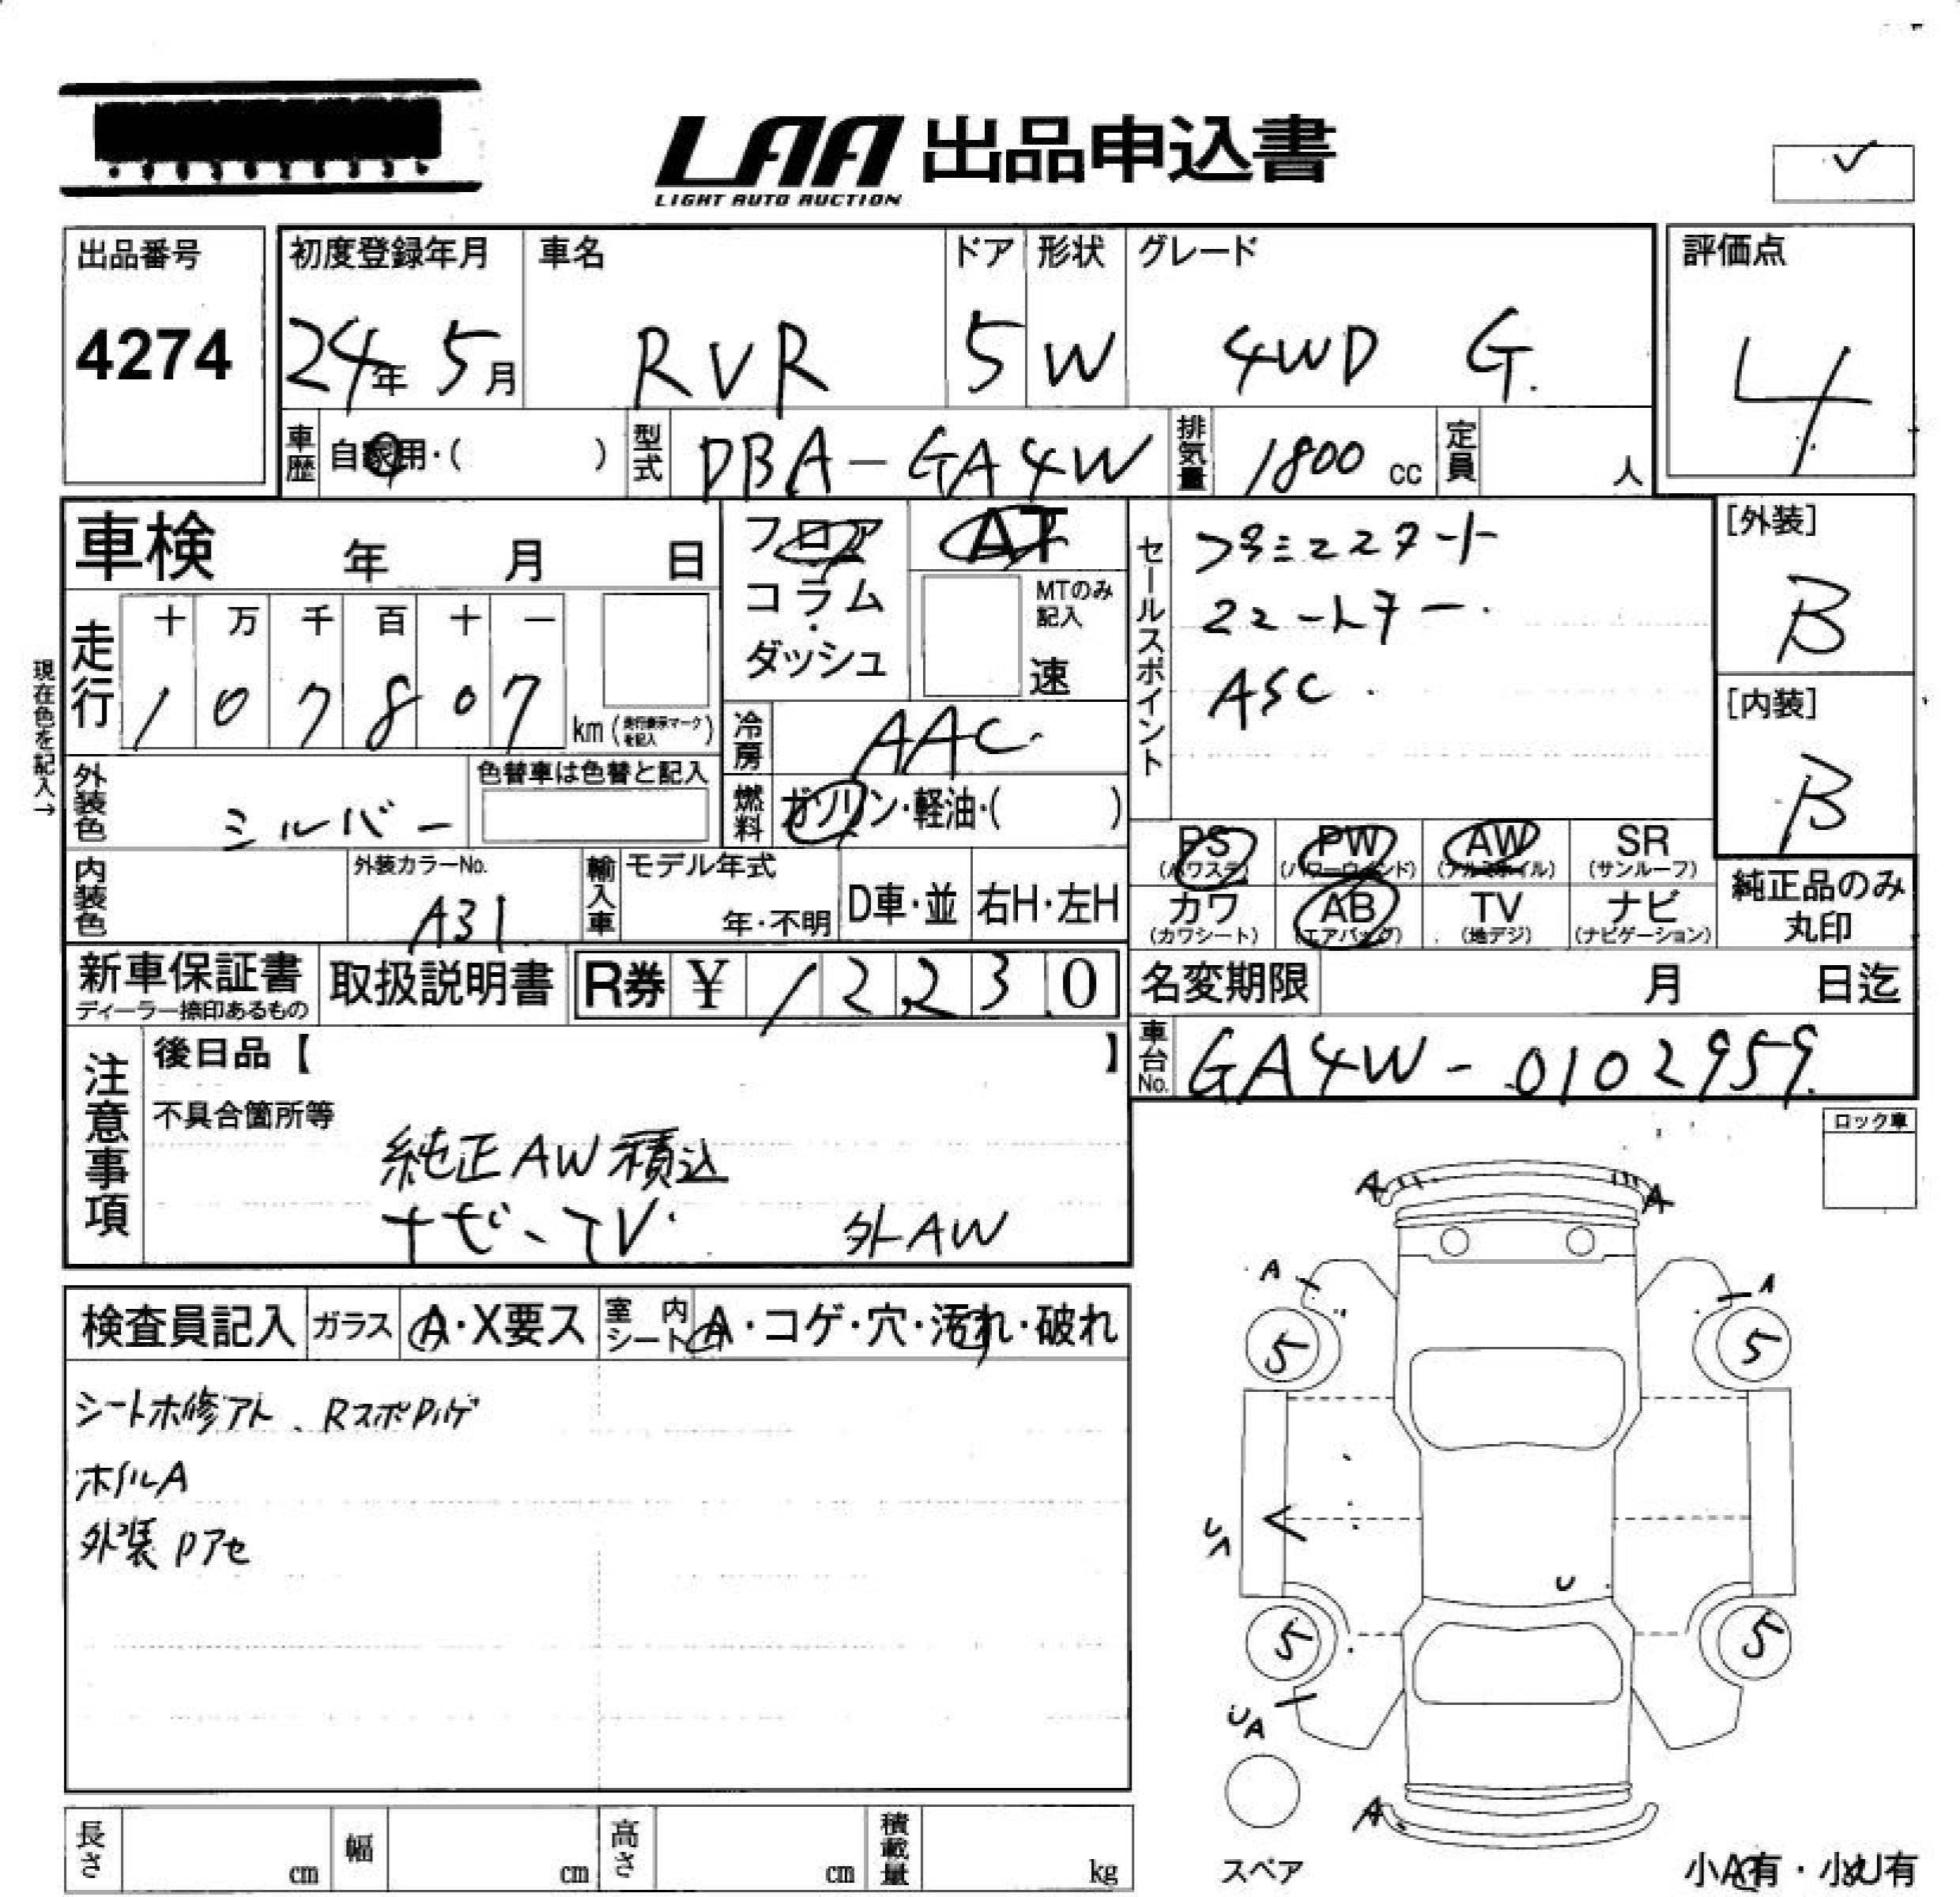 LAA 出品申込書
LIGHT AUTO AUCTION
✓
出品番号
4274
初度登録年月
24年 5月
車名
RVR
ドア
5
形状
W
グレード
4WD G.
評価点
4
車歴
自家用・( )
型式
DBA-GA4W
排気量
1800 cc
定員
人
車検 年 月 日
フロア
コラム
・
ダッシュ
AT
MTのみ
記入
速
セールスポイント
ASC.
[外装]
B
[内装]
B
現在色を記入→
走行
十 万 千 百 十 一
1 0 7 8 0 7
km(走行表示マークを記入)
冷房
AAC.
燃料
ガソリン・軽油・( )
外装色
シルバー
色替車は色替と記入
内装色
外装カラーNo.
A31
輸入車
モデル年式
年・不明
D車・並
右H・左H
PS
(パワステ)
PW
(パワーウィンド)
AW
(アルミホイル)
SR
(サンルーフ)
カワ
(カワシート)
AB
(エアバッグ)
TV
(地デジ)
ナビ
(ナビゲーション)
純正品のみ
丸印
新車保証書
ディーラー捺印あるもの
取扱説明書
R券 ¥ 12,230
名変期限 月 日迄
車台No.
GA4W-0102959
注意事項
後日品【 】
不具合箇所等
純正AW積込
ナビ、TV. 外AW
ロック車
検査員記入
ガラス
A・X要ス
室内シート
A・コゲ・穴・汚れ・破れ
シートホ修アト、RスポDハゲ
ホイルA
外装Dアセ
A A
A A
5 5
U
5 5
UA
A
スペア
小A有・小U有
長さ cm
幅 cm
高さ cm
積載量 kg